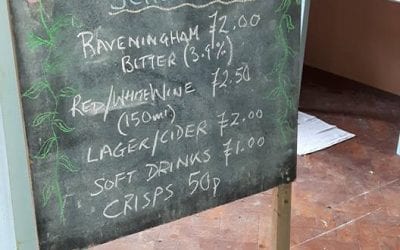 RAVENINGHAM £2.00
BITTER (3.9%)
RED/WHITE WINE £2.50
(150ml)
LAGER/CIDER £2.00
SOFT DRINKS £1.00
CRISPS 50p